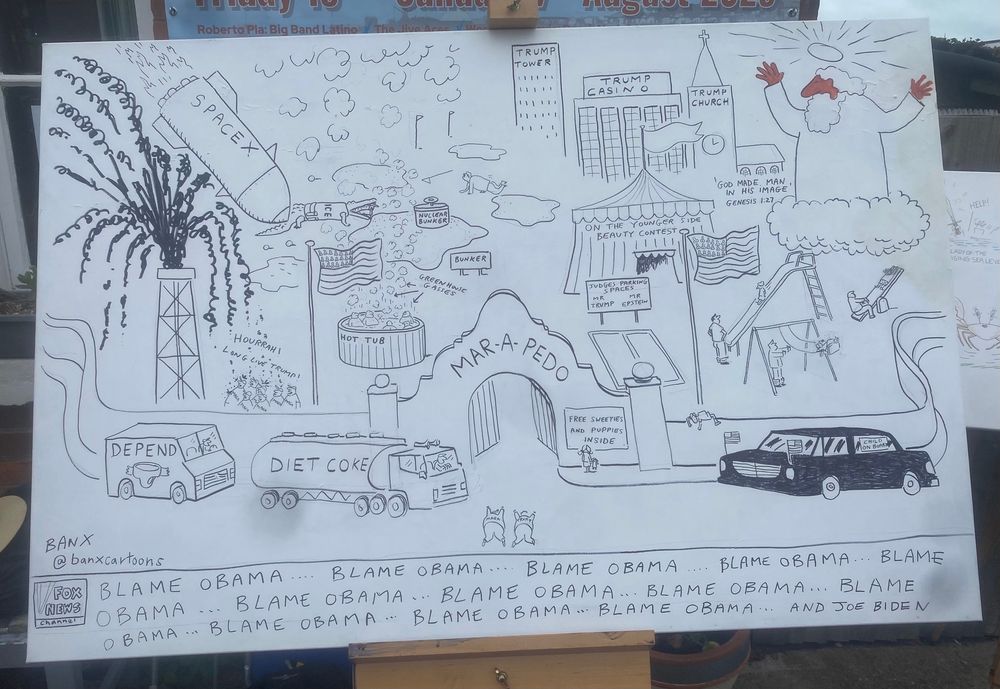 Friday 18 Sunday August 2025
Roberto Pla: Big Band Latino / The Jive Aces
SPACEX
TRUMP
TOWER
TRUMP
CASINO
TRUMP
CHURCH
'GOD MADE MAN
IN HIS IMAGE'
GENESIS 1:27
ICE
NUCLEAR
BUNKER
BUNKER
ON THE YOUNGER SIDE
BEAUTY CONTEST
JUDGES PARKING
SPACES
MR MR
TRUMP EPSTEIN
GREENHOUSE
GASSES
HOT TUB
HOURRAH!
LONG LIVE TRUMP!
MAR-A-PEDO
FREE SWEETIES
AND PUPPIES
INSIDE
DEPEND
DIET COKE
CHILD
ON BOARD
HELP!
BANX
@banxcartoons
FOX
NEWS
Channel
BLAME OBAMA .... BLAME OBAMA.... BLAME OBAMA .... BLAME OBAMA... BLAME
OBAMA ... BLAME OBAMA... BLAME OBAMA... BLAME OBAMA... BLAME
OBAMA... BLAME OBAMA... BLAME OBAMA... BLAME OBAMA... AND JOE BIDEN